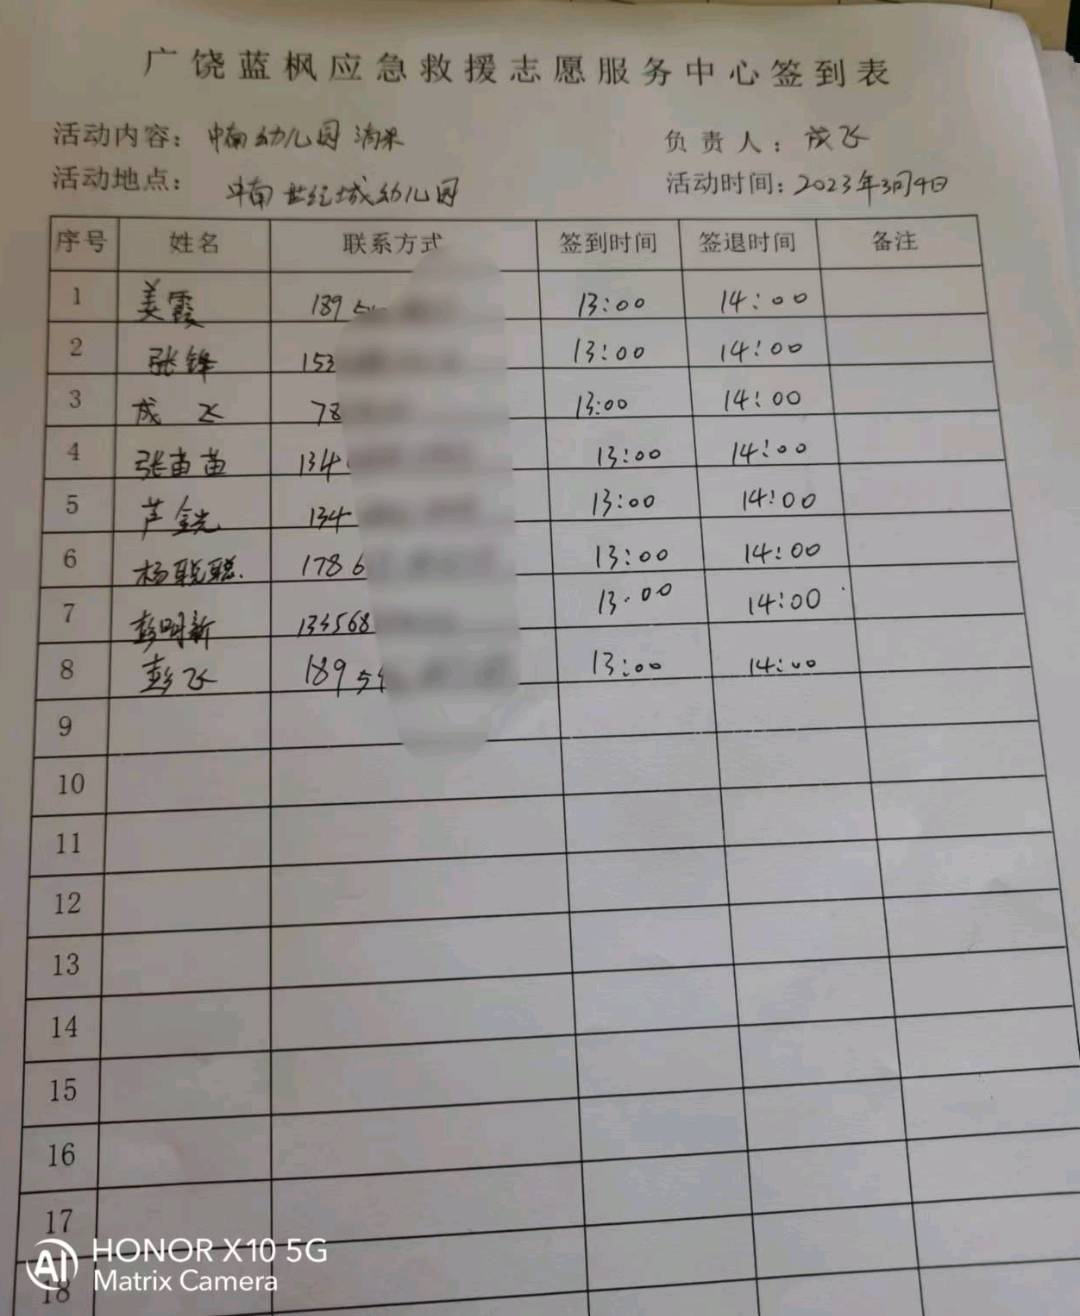 广饶蓝枫应急救援志愿服务中心签到表
活动内容：中南幼儿园消杀 负责人：成飞
活动地点：中南世纪城幼儿园 活动时间：2023年3月4日
序号 姓名 联系方式 签到时间 签退时间 备注
1 美霞 189 13:00 14:00
2 张锋 153 13:00 14:00
3 成飞 78 13:00 14:00
4 张苗苗 134 13:00 14:00
5 13:00 14:00 134
6 杨聪聪. 1786 13:00 14:00
7 彭明新 134568 13:00 14:00
8 彭飞 18954 13:00 14:00
9
10
11
12
13
14
15
16
17
18
AI HONOR X10 5G
Matrix Camera